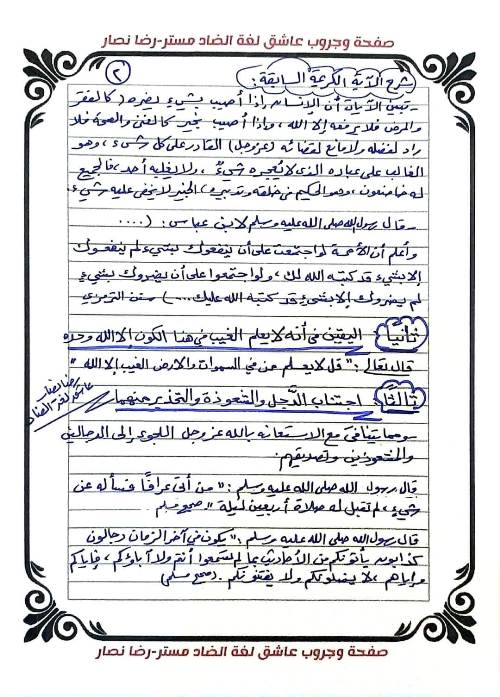 صفحة وجروب عاشق لغة الضاد مستر-رضا نصار
٢
شرح الآية الكريمة السابقة:
- تبين الآيات أن الإنسان إذا أصيب بشيء يضره (كالفقر
والمرض فلا يرفعه إلا الله، وإذا أصيب بخير كالغنى والصحة فلا
راد لفضله ولا مانع لقضائه (عز وجل) القادر على كل شيء، وهو
الغالب على عباده الذي لا يعجزه شيءٌ، ولا يغلبه أحد، فالجميع
له خاضعون، وهو الحكيم في خلقه وتدبيره) الخبير لا يخفى عليه شيء.
- قال رسول الله صلى الله عليه وسلم لابن عباس: (....
وأعلم أن الأمة لو اجتمعت على أن ينفعوك بشيء لم ينفعوك
إلا بشيء قد كتبه الله لك، ولو اجتمعوا على أن يضروك بشيء
لم يضروك إلا بشيء قد كتبه الله عليك...) سنن الترمذي
ثانيًا: اليقين في أنه لا يعلم الغيب في هذا الكون إلا الله وحده
قال تعالى: "قل لا يعلم من في السموات والأرض الغيب إلا الله"
ثالثًا: اجتناب الدَّجل والشعوذة والتحذير منهما
رضا نصار
عاشق لغة الضاد
- ومما يتنافى مع الاستعانة بالله عز وجل اللجوء إلى الدجالين
والمشعوذين وتصديقهم.
قال رسول الله صلى الله عليه وسلم: "من أتى عرافًا فسأله عن
شيءٍ، لم تقبل له صلاة أربعين ليلة" صحيح مسلم.
قال رسول الله صلى الله عليه وسلم: "يكون في آخر الزمان دجالون
كذابون يأتونكم من الأحاديث بما لم تسمعوا أنتم ولا آباؤكم، فإياكم
وإياهم، لا يضلونكم ولا يفتنونكم. (صحيح مسلم)
صفحة وجروب عاشق لغة الضاد مستر-رضا نصار